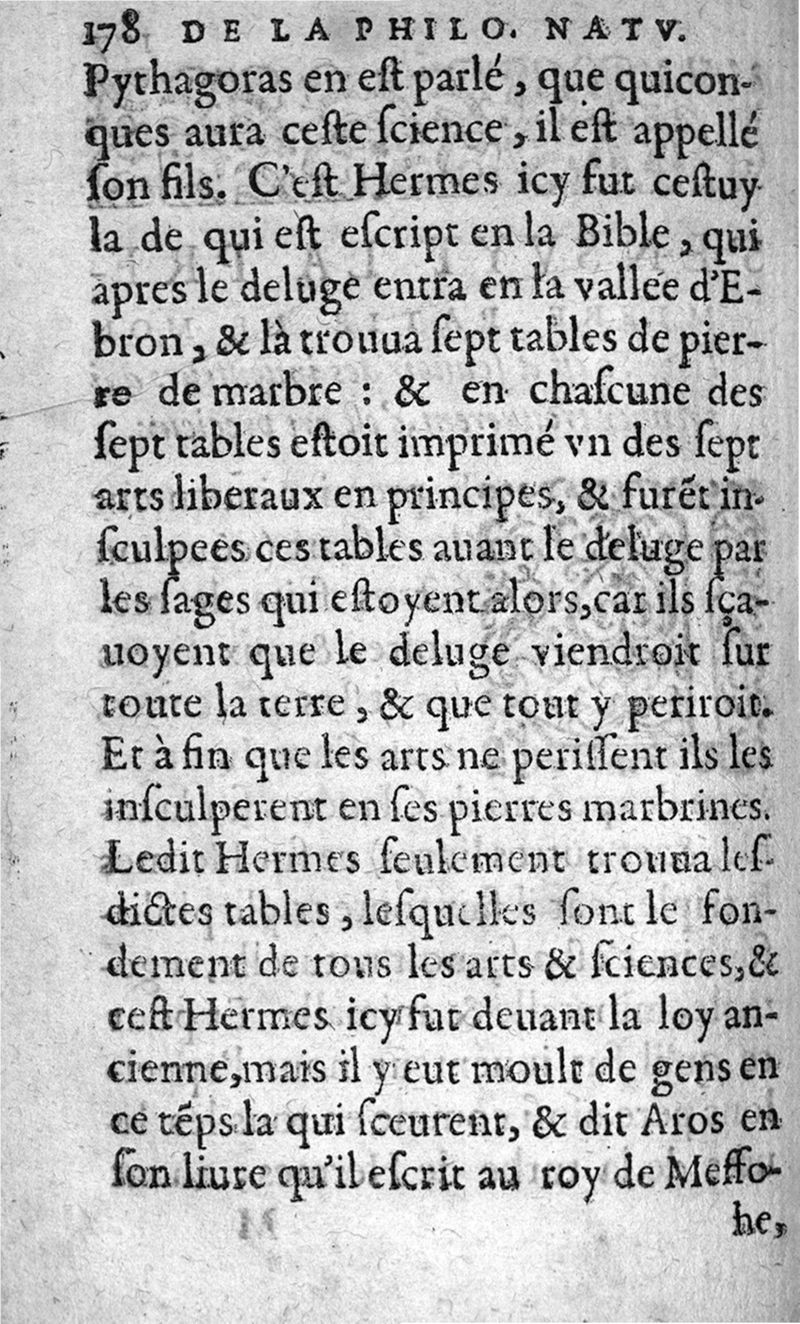 178 DE LA PHILO. NATV.
Pythagoras en eſt parlé, que quicon-
ques aura ceſte ſcience, il eſt appellé
ſon fils. C'eſt Hermes icy fut ceſtuy
la de qui eſt eſcript en la Bible, qui
apres le deluge entra en la vallée d'E-
bron, & là trouua ſept tables de pier-
re de marbre : & en chaſcune des
ſept tables eſtoit imprimé vn des ſept
arts liberaux en principes, & furẽt in-
ſculpees ces tables auant le deluge par
les ſages qui eſtoyent alors, car ils ſça-
uoyent que le deluge viendroit ſur
toute la terre, & que tout y periroit.
Et à fin que les arts ne periſſent ils les
inſculperent en ſes pierres marbrines.
Ledit Hermes ſeulement trouua leſ-
dictes tables, leſquelles ſont le fon-
dement de tous les arts & ſciences, &
ceſt Hermes icy fut deuant la loy an-
cienne, mais il y eut moult de gens en
ce tẽps la qui ſceurent, & dit Aros en
ſon liure qu'il eſcrit au roy de Meſſo-
he,